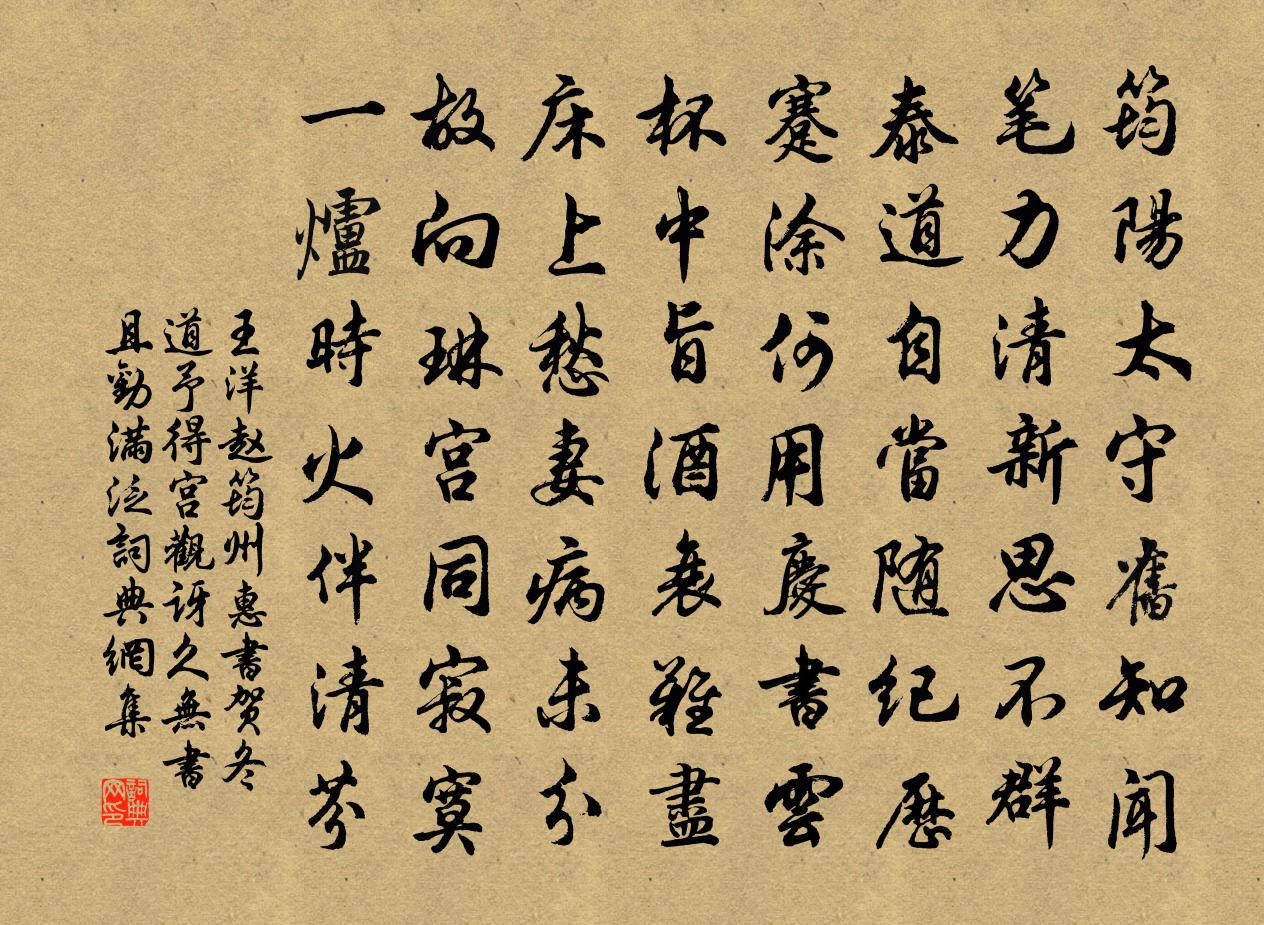 筠陽太守舊知聞
笔力清新思不群
泰道自當随纪歷
蹇涂何用慶書雲
杯中旨酒衰難盡
床上愁妻病未分
故向琳宫同寂寞
一爐時火伴清芬
王洋赵筠州惠書贺冬
道予得宫觀讶久無書
且勸滿泛詞典網集
詞典
网印